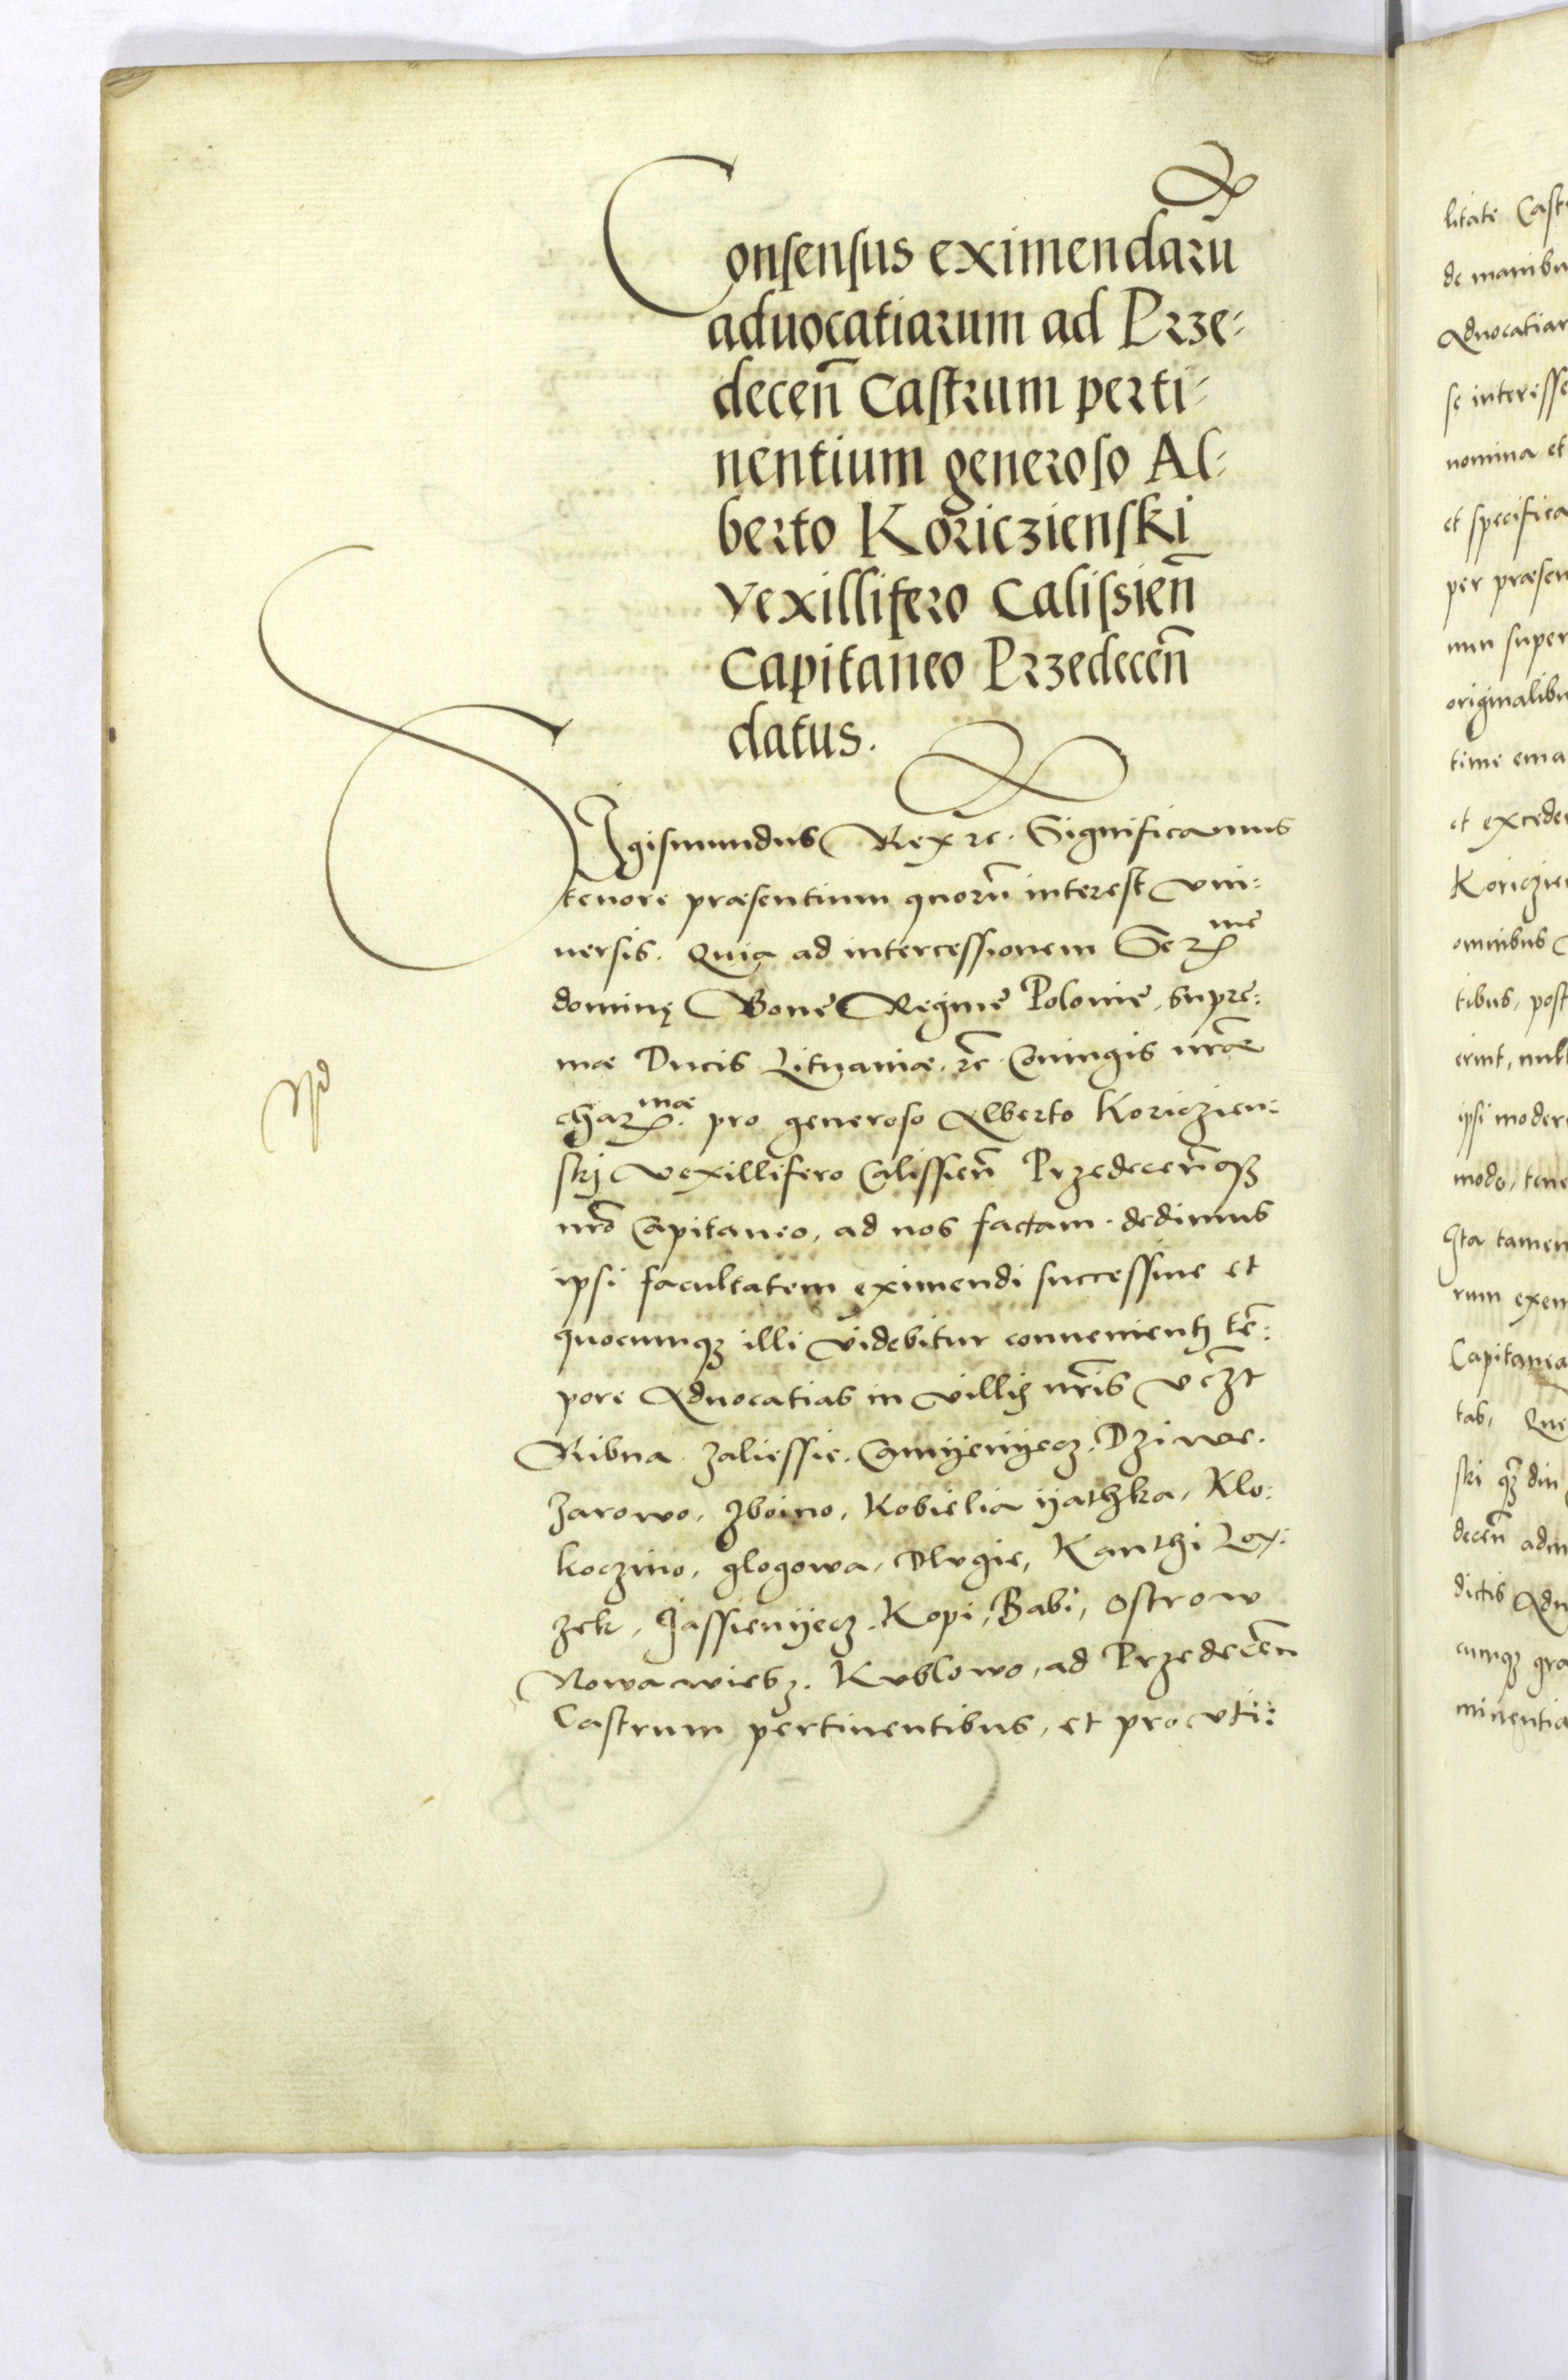 Consensus eximendarū
aduocatiarum ad Prze-
decen̄ Castrum perti-
nentium generoso Al-
berto Koriczienski
Vexillifero Calissien̄
Capitaneo Przedecen̄
datus.
Sigismundus Rex ꝛc. Significamus
tenore præsentium quorū interest vni:
uersis. Quia ad intercessionem Serme
dominę Bonę Reginę Polonię, supre:
mæ Ducis Lituaniæ. ꝛc Coniugis nr̄æ
charmæ. pro generoso Alberto Koriczien:
skj Vexillifero Calissien̄ Przedecen̄qꝫ
nr̄o Capitaneo, ad nos factam. dedimus
ipsi facultatem eximendi successiue et
quocumqꝫ illi videbitur conuenienti tē:
pore Aduocatias in villis nr̄is vcꝫt
Ribna. Zaliessie. Camyenyecz. Dziwe.
Zarowo, Zboino, Kobielia yathka, Klo:
koczino, glogowa, Dlugie, Kanthi Lex:
zek, Jassienyecz. Kopi, Babi, Ostrow
Nowa wiesz. Kublowo, ad Przedecen̄
Castrum pertinentibus, et pro vti:
litate Cast
de manibu
Aduocatiar
se interesse
nomina et
et specifica
per præsen
num super
originalibu
time ema
et excede
Koriczie
omnibus
tibus, post
erint, null
ipsi moder
modo, tene
Ita tamen
rum exem
Capitanea
tas, Que
ski qꝫ din
decen̄ adm
dictis Adu
cumqꝫ gra
minentia